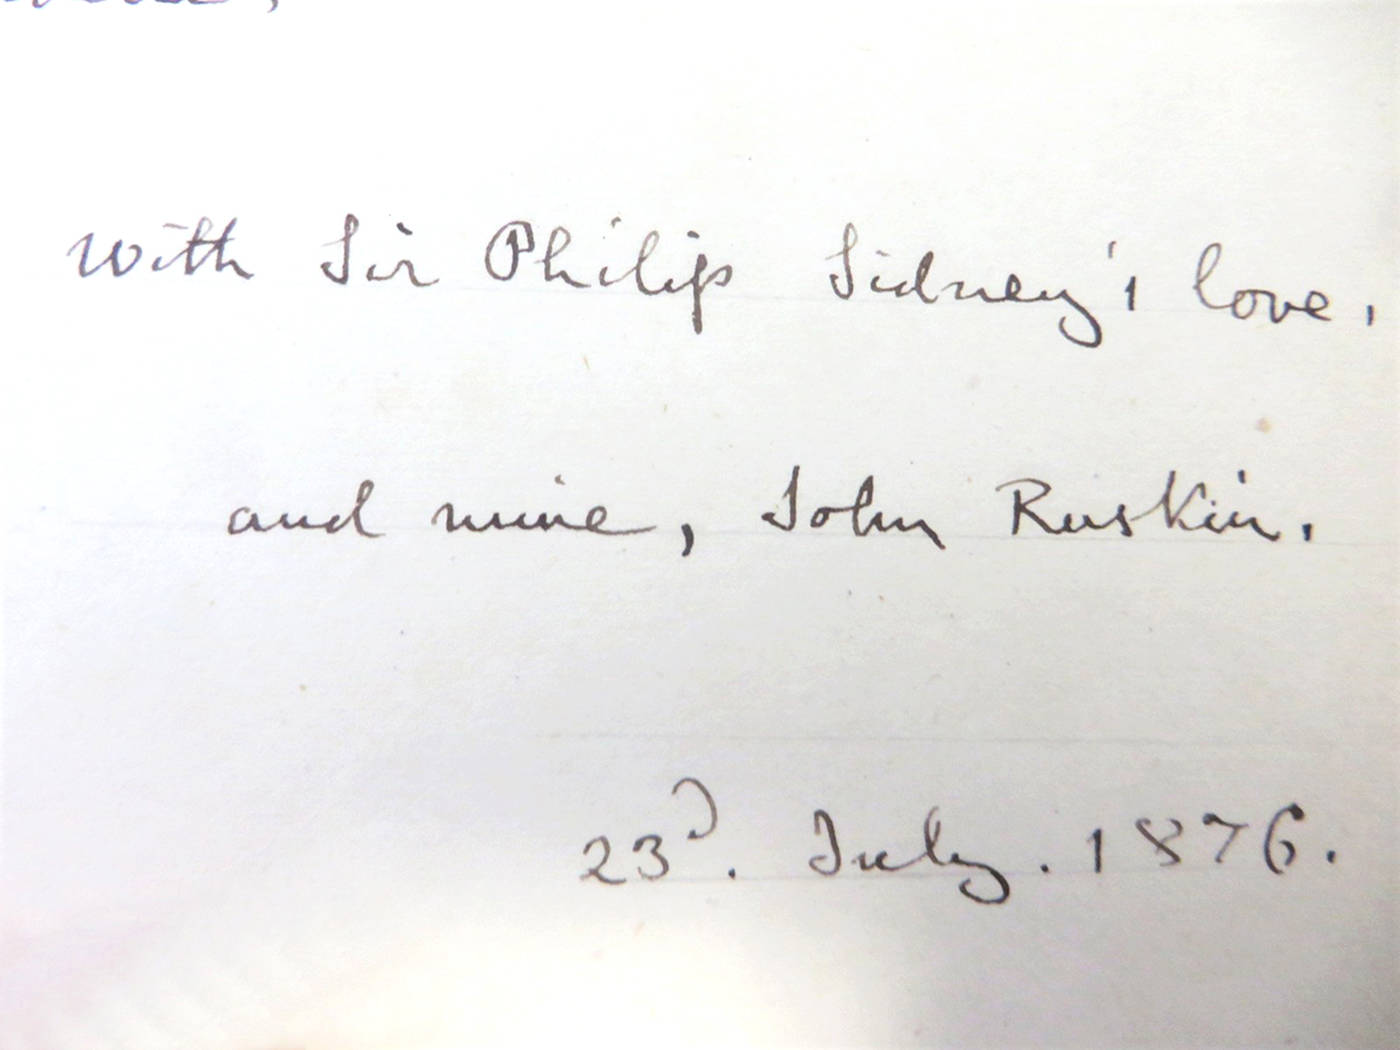 with Sir Philip Sidney's love,
and mine, John Ruskin.
23d. July. 1876.